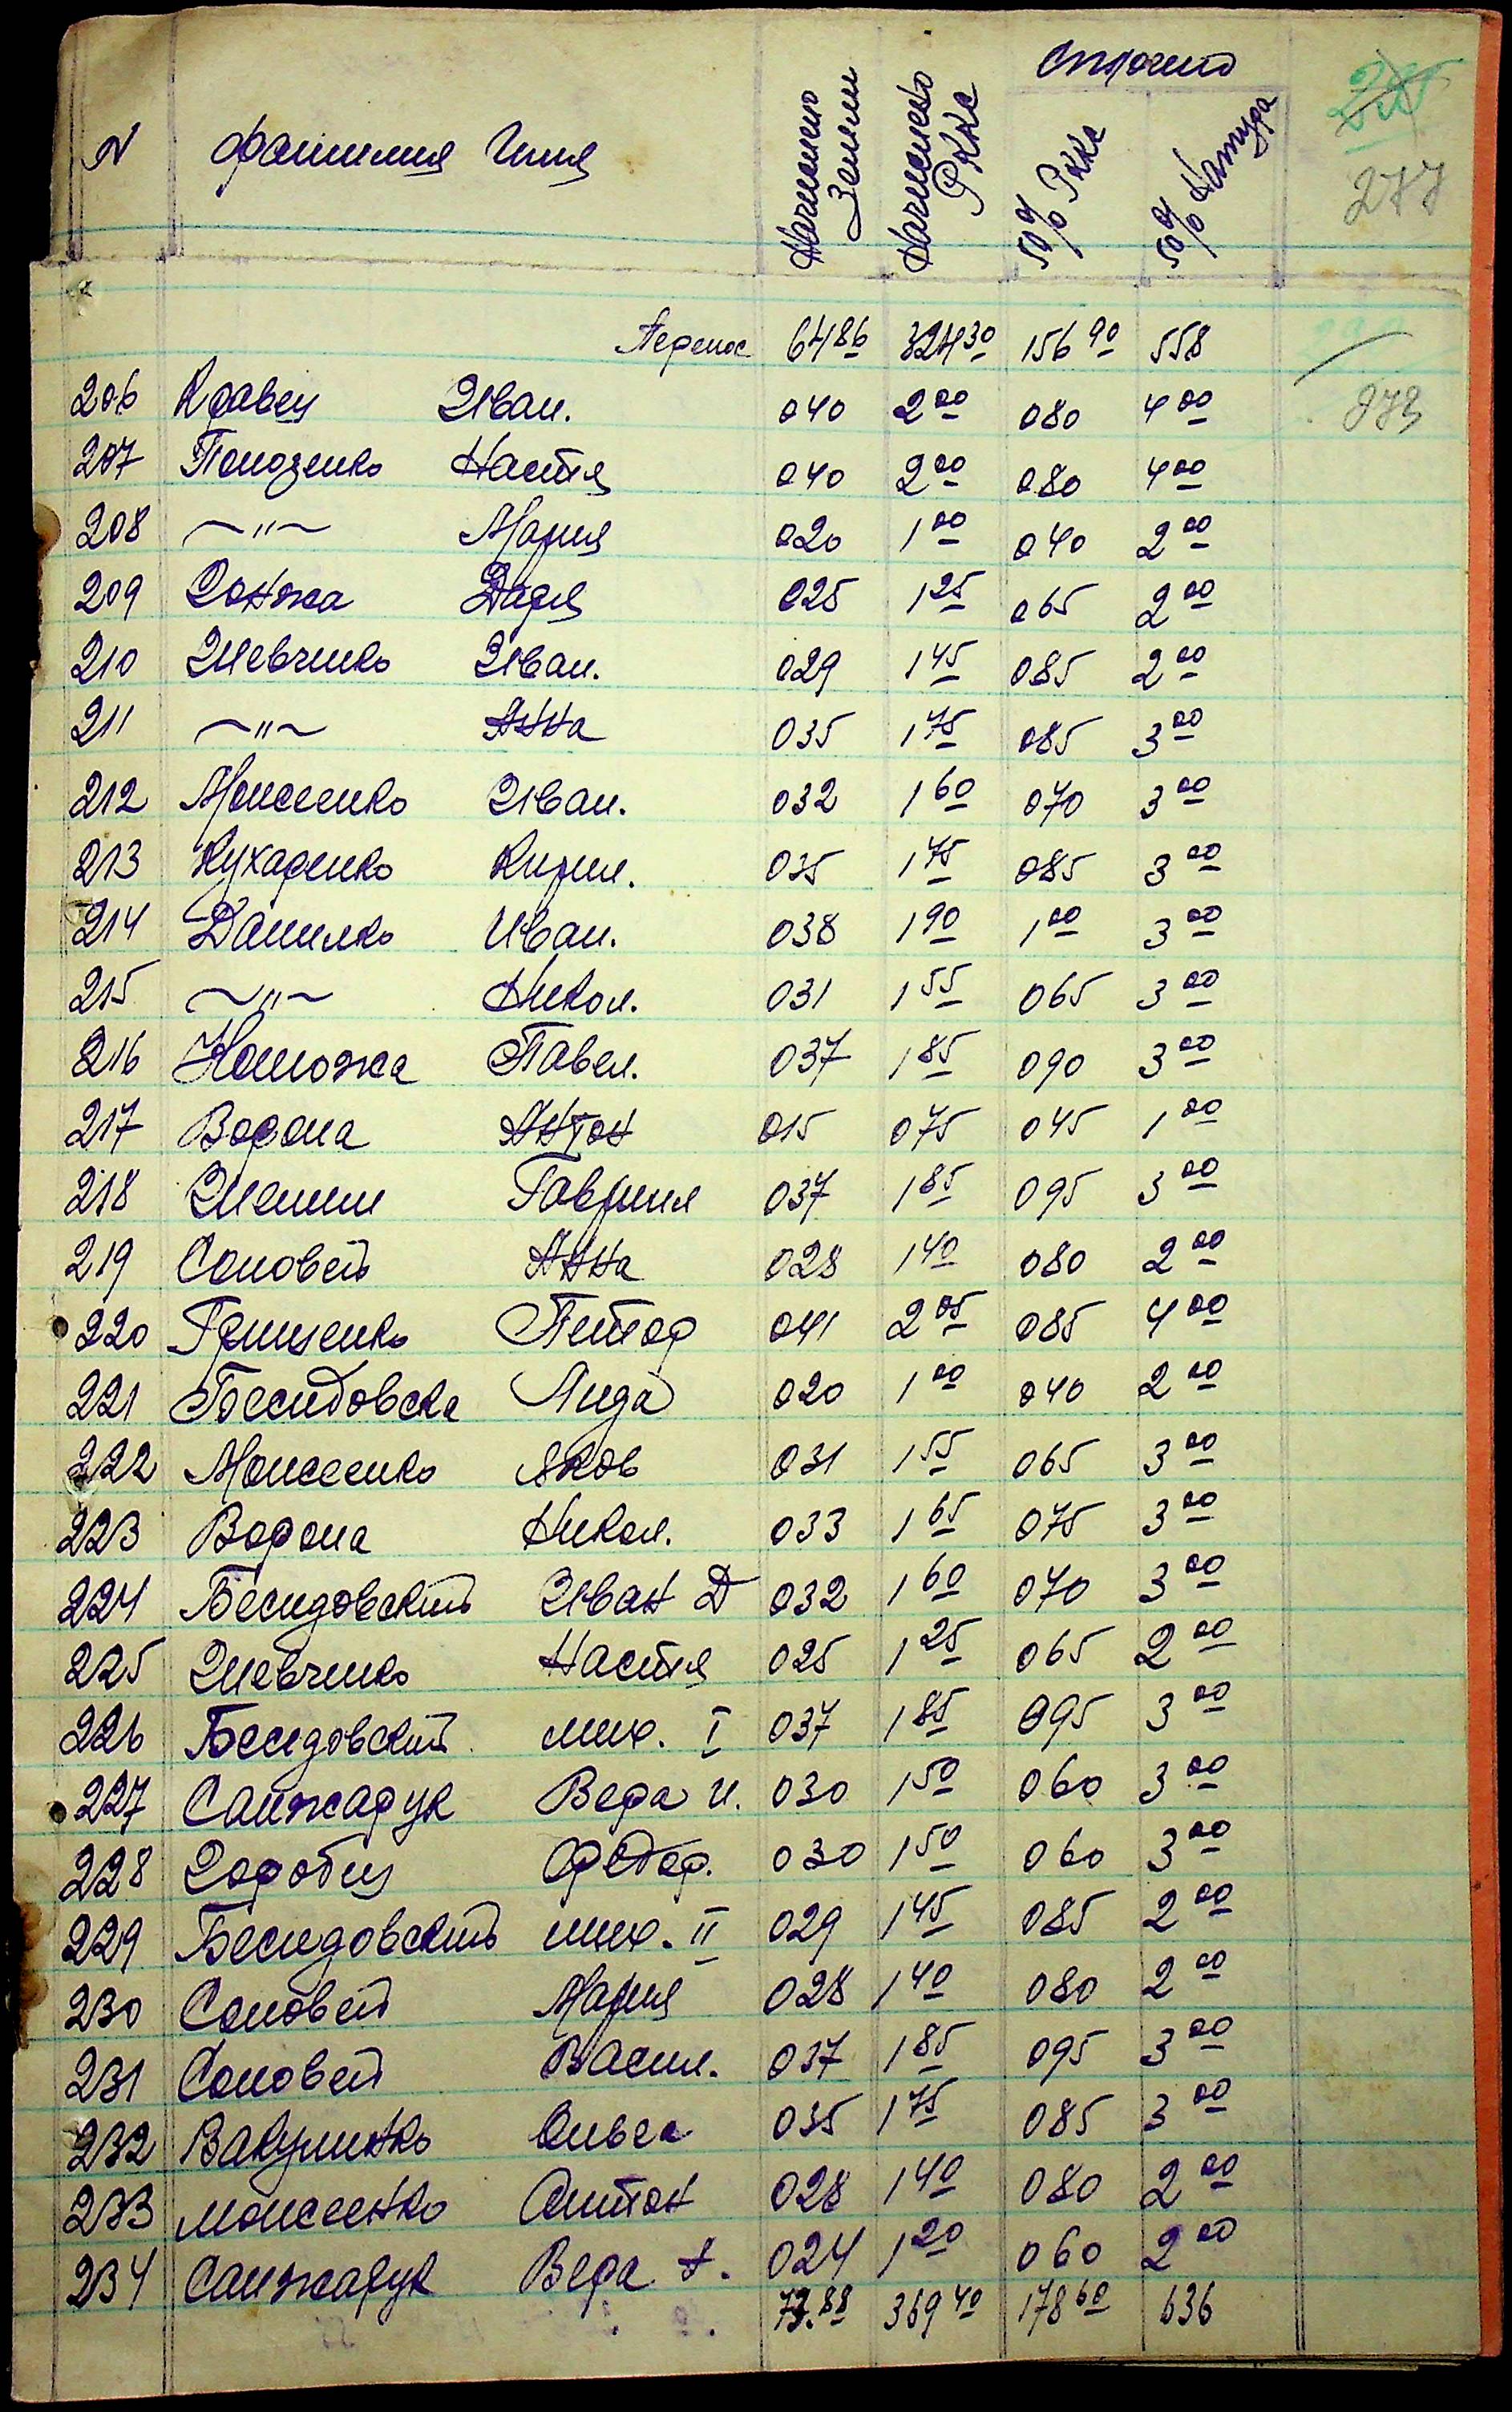 N Фамилия Имя Начислено Земли Начислено РККа Оплочено 50% РККа 50% Натура
277
Перенос 64 86 324 30 156 90 558
206 Кравец Иван. 0 40 2 00 0 80 4 00
207 Полозенко Настя 0 40 2 00 0 80 4 00
208 —"— Мария 0 20 1 00 0 40 2 00
209 Ронжа Дадя 0 25 1 25 0 65 2 00
210 Шевченко Иван. 0 29 1 45 0 85 2 00
211 —"— Анна 0 35 1 75 0 85 3 00
212 Моисеенко Иван. 0 32 1 60 0 70 3 00
213 Кухаренко Кирил. 0 35 1 75 0 85 3 00
214 Данилко Иван. 0 38 1 90 1 00 3 00
215 —"— Никол. 0 31 1 55 0 65 3 00
216 Павел. 0 37 1 85 0 90 3 00
217 Ворона Антон 0 15 0 75 0 45 1 00
218 Гаврила 0 37 1 85 0 95 3 00
219 Соловей Анна 0 28 1 40 0 80 2 00
220 Грищенко Петор 0 41 2 05 0 85 4 00
221 Бесидовска Лида 0 20 1 00 0 40 2 00
222 Моисеенко Яков 0 31 1 55 0 65 3 00
223 Ворона Никол. 0 33 1 65 0 75 3 00
224 Бесидовский Иван Д 0 32 1 60 0 70 3 00
225 Шевченко Настя 0 25 1 25 0 65 2 00
226 Беседовский мих. I 0 37 1 85 0 95 3 00
227 Санжарук Вера И. 0 30 1 50 0 60 3 00
228 Федор. 0 30 1 50 0 60 3 00
229 Беседовский мих. II 0 29 1 45 0 85 2 00
230 Соловей Мария 0 28 1 40 0 80 2 00
231 Соловей Васил. 0 37 1 85 0 95 3 00
232 Вакуленко Ольга 0 35 1 75 0 85 3 00
233 Моисеенко Антон 0 28 1 40 0 80 2 00
234 Санжарук Вера А. 0 24 1 20 0 60 2 00
73.88 369 40 178 60 636